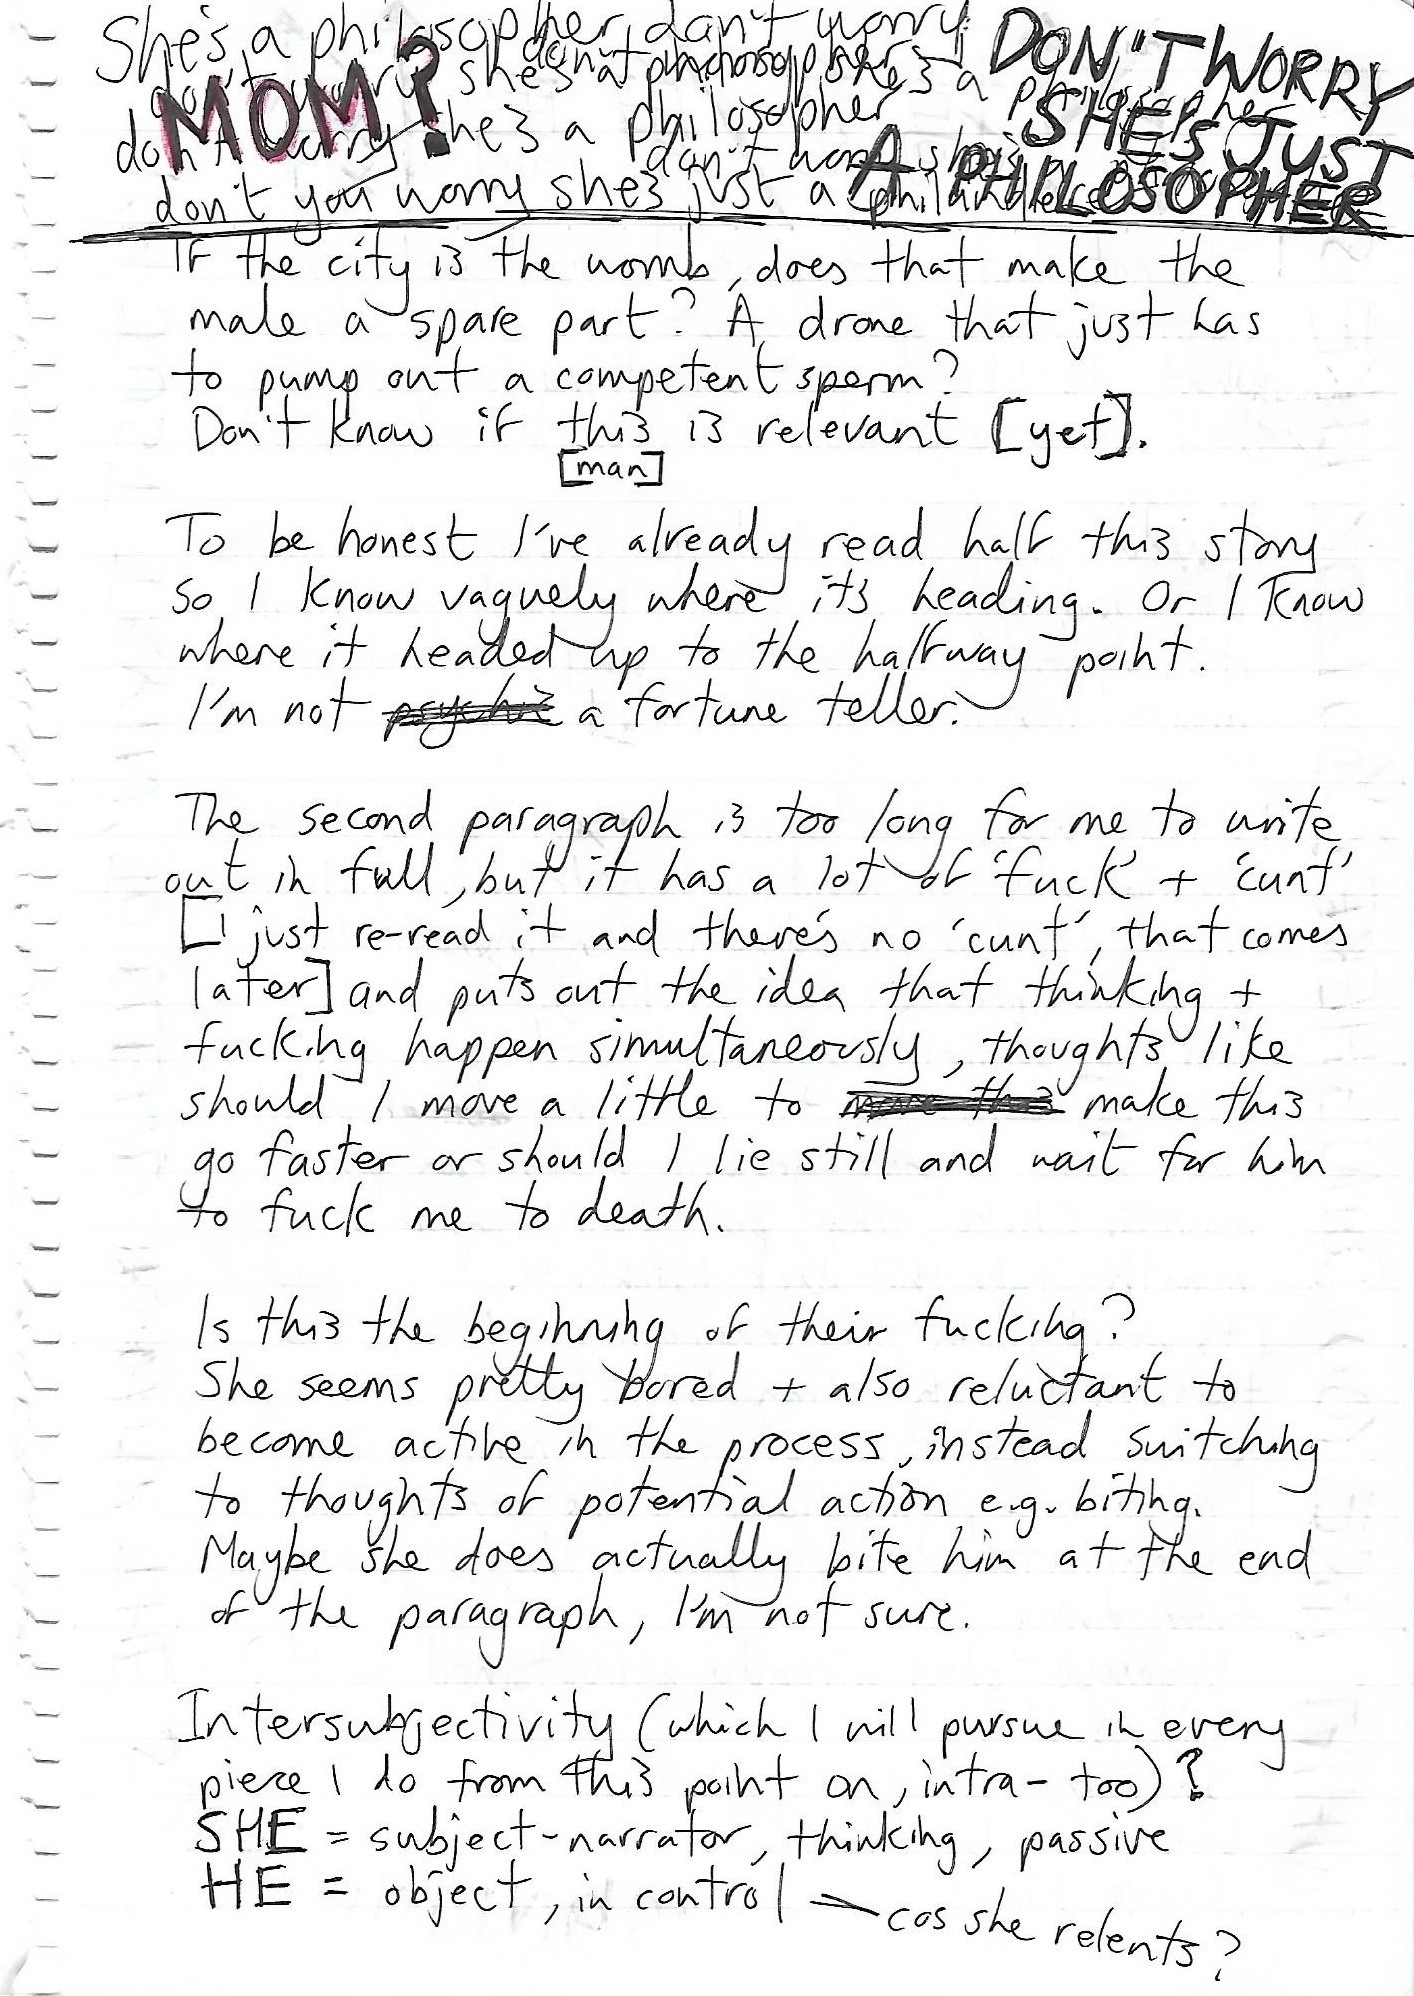 She's a philosopher don't worry
don't worry she's a philosopher she's a philosopher
MOM?
DON'T WORRY
SHE'S JUST
A PHILOSOPHER
don't worry she's a philosopher
don't worry she's
don't you worry she's just a
If the city is the womb, does that make the
male a spare part? A drone that just has
to pump out a competent sperm?
Don't know if this is relevant [yet].
[man]
To be honest I've already read half this story
so I know vaguely where it's heading. Or I know
where it headed up to the halfway point.
I'm not psychic a fortune teller.
The second paragraph is too long for me to write
out in full, but it has a lot of 'fuck' + 'cunt'
[I just re-read it and there's no 'cunt', that comes
later] and puts out the idea that thinking +
fucking happen simultaneously, thoughts like
should I move a little to move this make this
go faster or should I lie still and wait for him
to fuck me to death.
Is this the beginning of their fucking?
She seems pretty bored + also reluctant to
become active in the process, instead switching
to thoughts of potential action e.g. biting.
Maybe she does actually bite him at the end
of the paragraph, I'm not sure.
Intersubjectivity (which I will pursue in every
piece I do from this point on, intra- too)?
SHE = subject-narrator, thinking, passive
HE = object, in control — cos she relents?